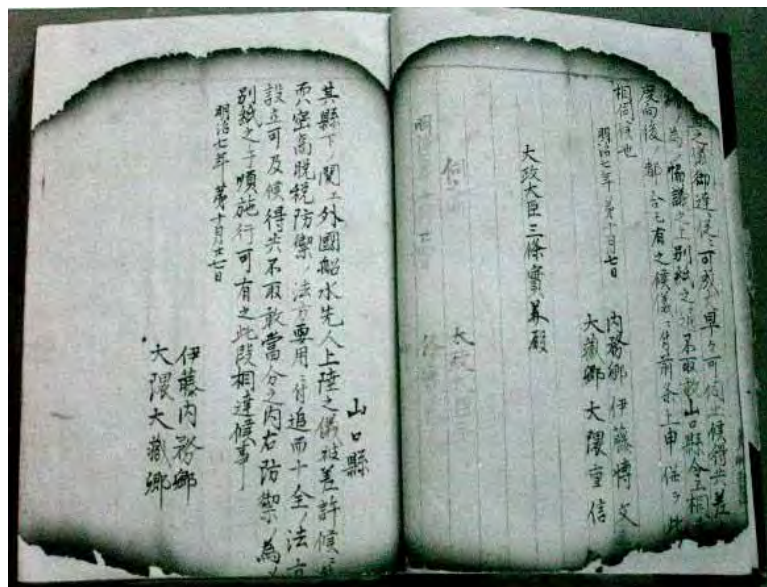 之道御達ニ従ニ可成ハ早々可伺上候得共差
為メ協議之上別紙之通不取敢山口縣令エ相
度向後都合モ有之候儀ニ付前条上申併テ此
相伺候也
明治七年第十月七日
内務卿伊藤博文
大藏卿大隈重信
大政大臣三條實美殿
山口縣
其縣下ノ関エ外國船水先人上陸之儀被差許候ニ
而ハ密商脱税防禦ノ法方要用ニ付追而十全ノ法方
設立可及候得共不取敢當分之内右防禦ノ為メ
別紙之手順施行可有之此段相達候事
明治七年第十月十七日
伊藤内務卿
大隈大藏卿